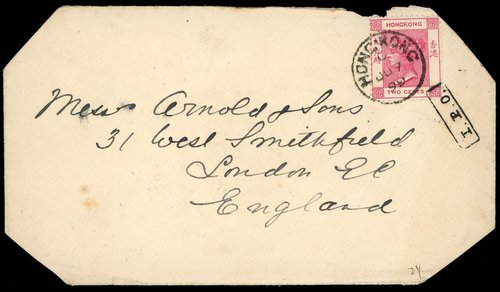 HONGKONG
香港
TWO CENTS
HONG KONG
I.P.O.
Messrs Arnold & Sons
31 West Smithfield
London EC
England
24